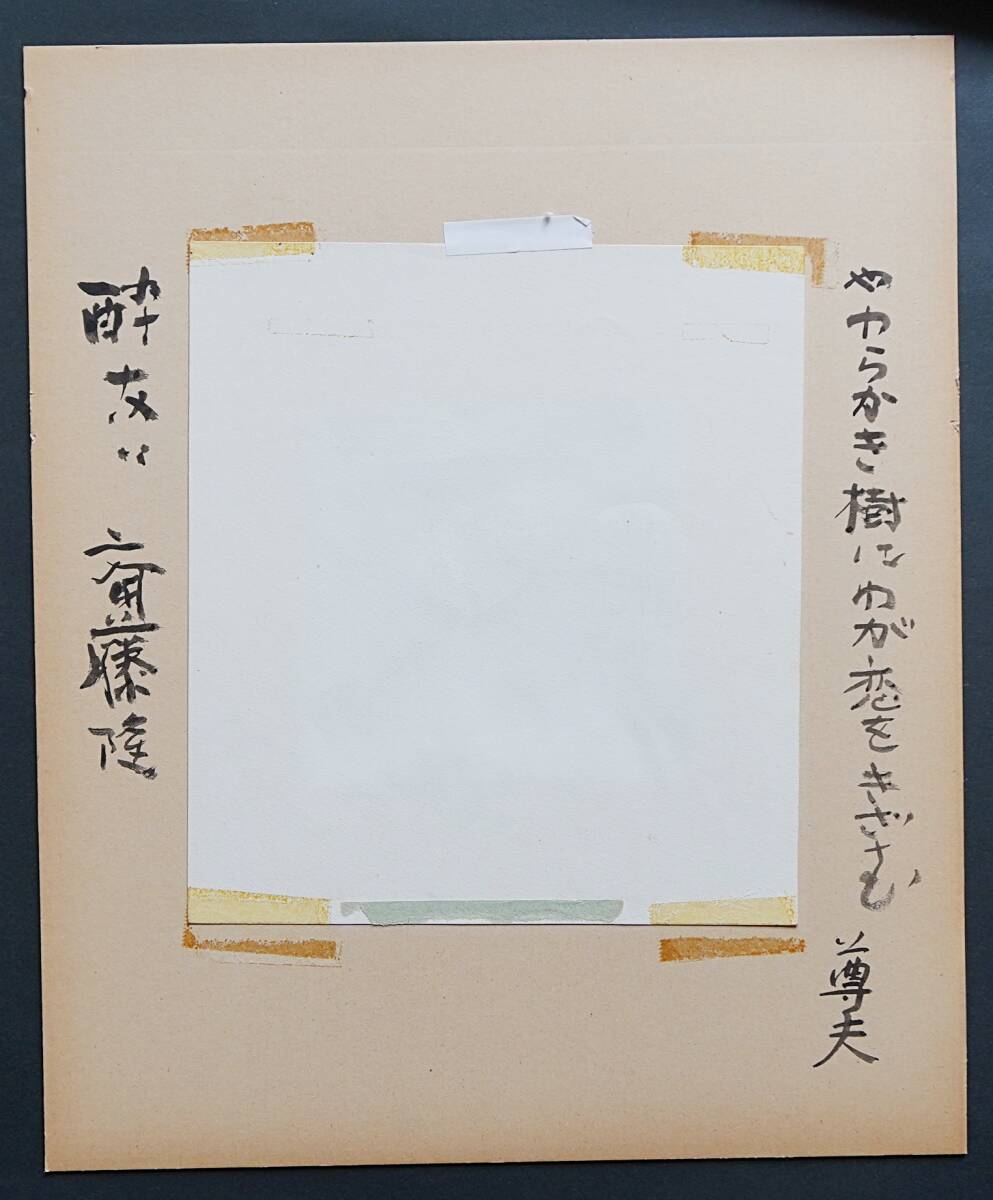 やわらかき樹にわが恋をきざむ 尊夫
酔友 齋藤隆